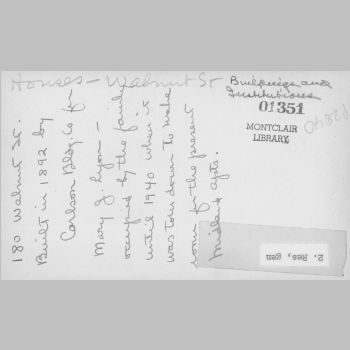 Houses - Walnut St
Buildings and
Institutions
01351
MONTCLAIR
LIBRARY
180 Walnut St.
Built in 1892 by
Carlson Bldg. Co. for
Mary J. Lyon -
occupied by the family
until 1940 when it
was torn down to make
room for the present
Midland Apts.
2. Res, gen